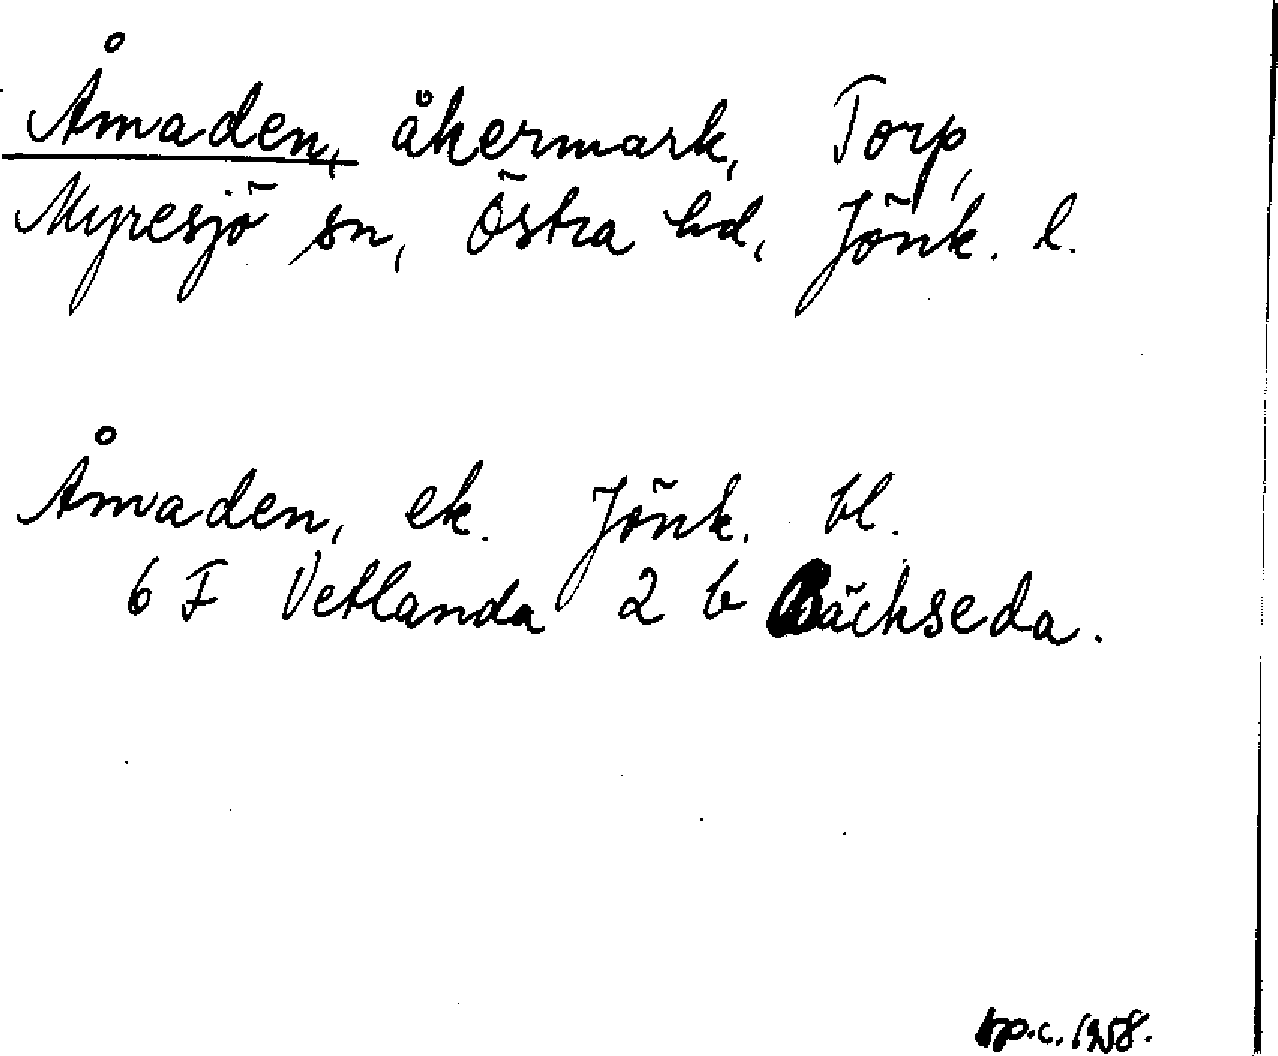 Åmaden, åkermark, Torp,
Myresjö sn, Östra hd, Jönk. l.
Åmaden, ek. Jönk. bl.
6 F Vetlanda 2 b Bäckseda.
1958.